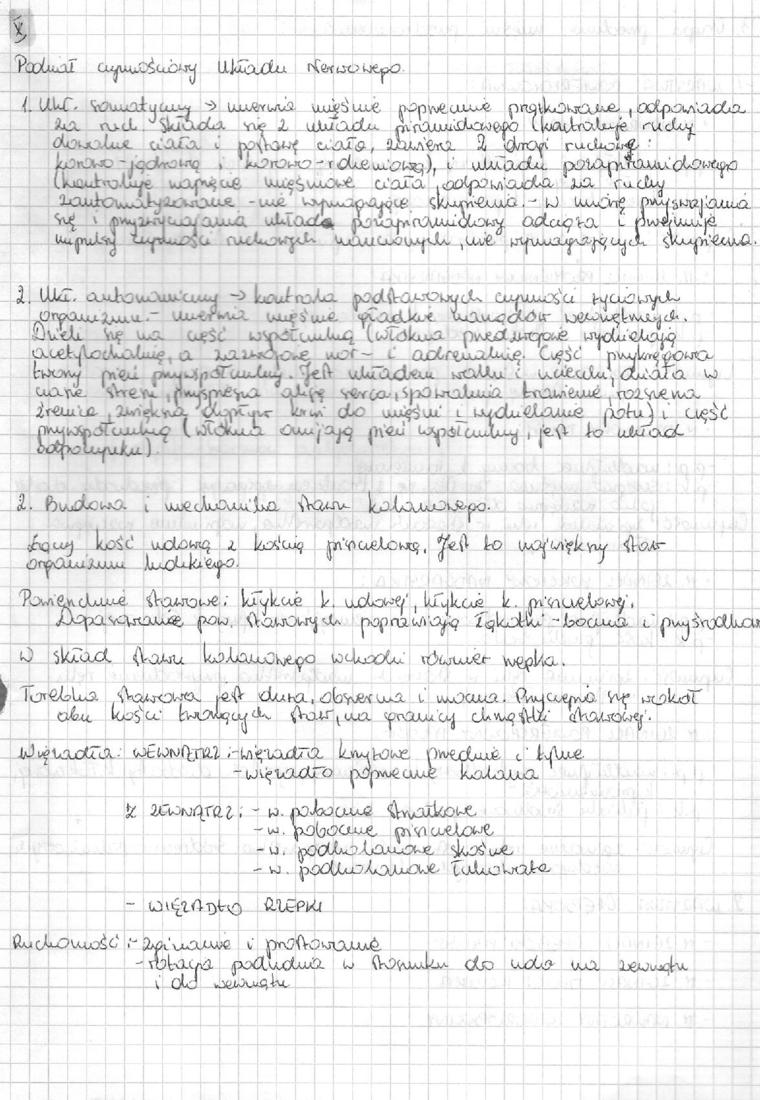 X
Podział czynnościowy Układu Nerwowego.
1. Ukł. somatyczny → unerwia mięśnie poprzecznie prążkowane, odpowiada
za ruch. Składa się z układu piramidowego (kontroluje ruchy
dowolne ciała i postawę ciała, zawiera 2 drogi ruchowe:
korowo-jądrową i korowo-rdzeniową), i układu pozapiramidowego
(kontroluje napięcie mięśniowe ciała, odpowiada za ruchy
zautomatyzowane - nie wymagające skupienia. - w miarę przyswajania
się i przyzwyczajania układ pozapiramidowy odciąża i przejmuje
impulsy czynności ruchowych nauczonych, nie wymagających skupienia.
2. Ukł. autonomiczny → kontrola podstawowych czynności życiowych
organizmu. - unerwia mięśnie gładkie narządów wewnętrznych.
Dzieli się na część współczulną (włókna przedzwojowe wydzielają
acetylocholinę, a zazwojowe nor- i adrenalinę. Część przykręgowa
tworzy pień przywspółczulny. Jest układem walki i ucieczki, działa w
czasie stresu, przyspiesza akcję serca, spowalnia trawienie, rozszerza
źrenice, zwiększa dopływ krwi do mięśni i wydzielanie potu) i część
przywspółczulną (włókna omijają pień współczulny, jest to układ
odpoczynku).
2. Budowa i mechanika stawu kolanowego.
Łączy kość udową z kością piszczelową. Jest to największy staw
organizmu ludzkiego.
Powierzchnie stawowe: kłykcie k. udowej, kłykcie k. piszczelowej.
Dopasowanie pow. stawowych poprawiają łąkotki - boczna i przyśrodkowa
W skład stawu kolanowego wchodzi również rzepka.
Torebka stawowa jest duża, obszerna i mocna. Przyczepia się wokół
obu kości tworzących staw, na granicy chrząstki stawowej.
Więzadła: WEWNĄTRZ: - więzadła krzyżowe przednie i tylne
- więzadło poprzeczne kolana
Z ZEWNĄTRZ: - w. poboczne strzałkowe
- w. poboczne piszczelowe
- w. podkolanowe skośne
- w. podkolanowe łukowate
- WIĘZADŁO RZEPKI
Ruchomość: - zginanie i prostowanie
- rotacja podudzia w stosunku do uda na zewnątrz
i do wewnątrz